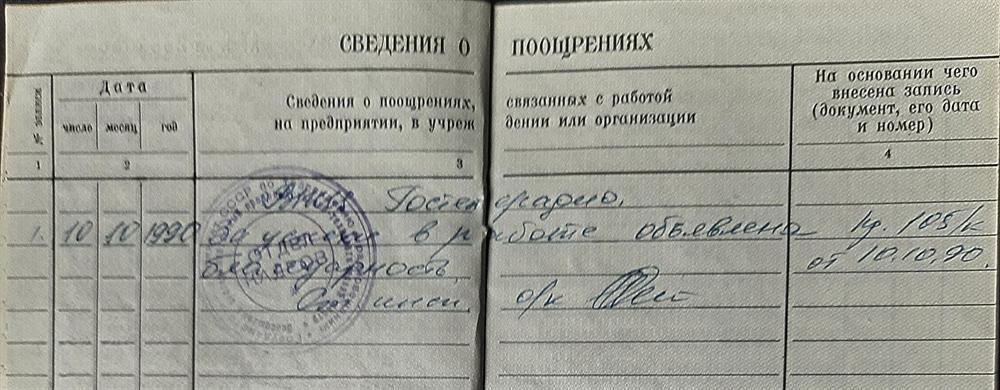 СВЕДЕНИЯ О ПООЩРЕНИЯХ
№ записи
Дата
число месяц год
Сведения о поощрениях, связанных с работой
на предприятии, в учреж дении или организации
На основании чего
внесена запись
(документ, его дата
и номер)
1 2 3 4
Гостелерадио.
1. 10 10 1990 За успехи в работе объявлена Пр. 105/к
благодарность от 10.10.90.
о/к
ОТДЕЛ
КАДРОВ